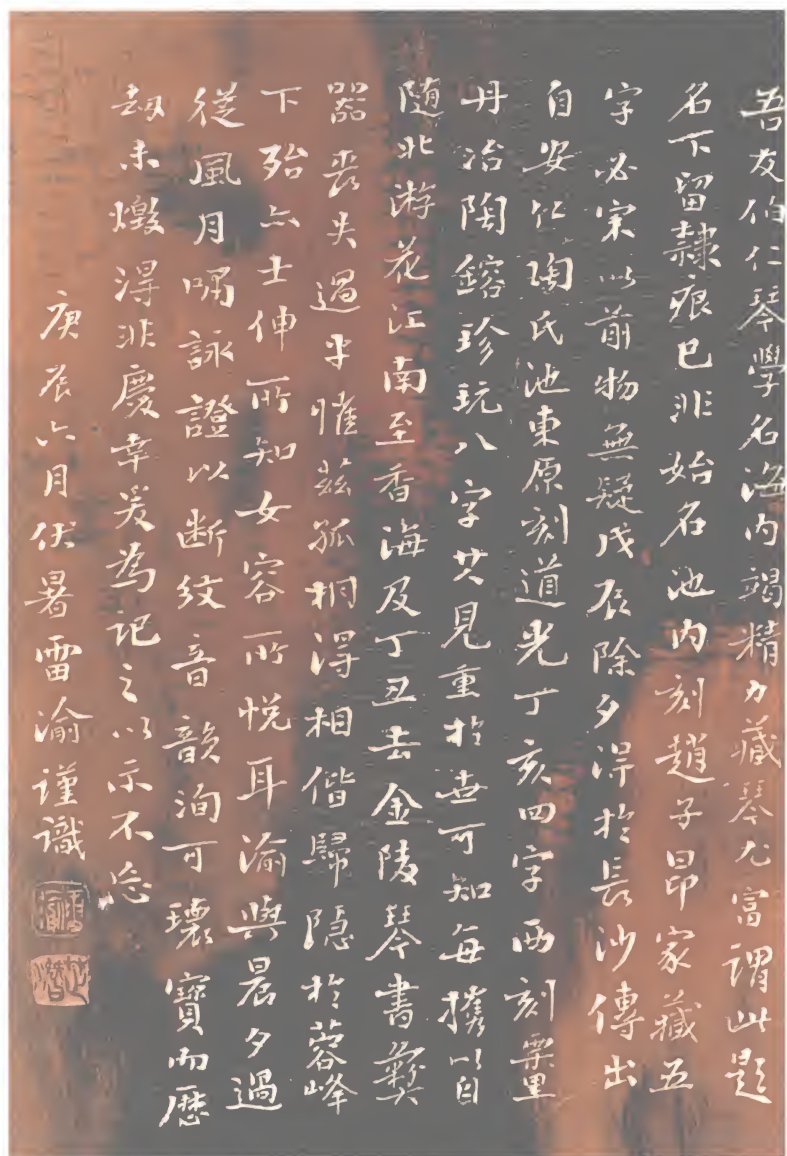 吾友伯仁琴學名海内竭精力藏琴尤富謂此題
名下留隸痕已非始名池内刻趙子昂家藏五
字必宋以前物無疑戊辰除夕淂扵長沙傳出
自安仁陶氏池東原刻道光丁亥四字西刻栗里
丹冶陶鎔珍玩八字其見重扵世可知每攜以自
随北游花江南至香海及丁丑去金陵琴書彝
器喪失過半惟茲孤桐淂相偕歸隱扵蓉峰
下殆亦士伸所知女容所悅耳渝與晨夕過
從風月嘯詠證以断紋音韻洵可瓌寶而歷
劫未燬淂非慶幸爰為記之以示不忘
庚辰六月伏暑雷渝謹識